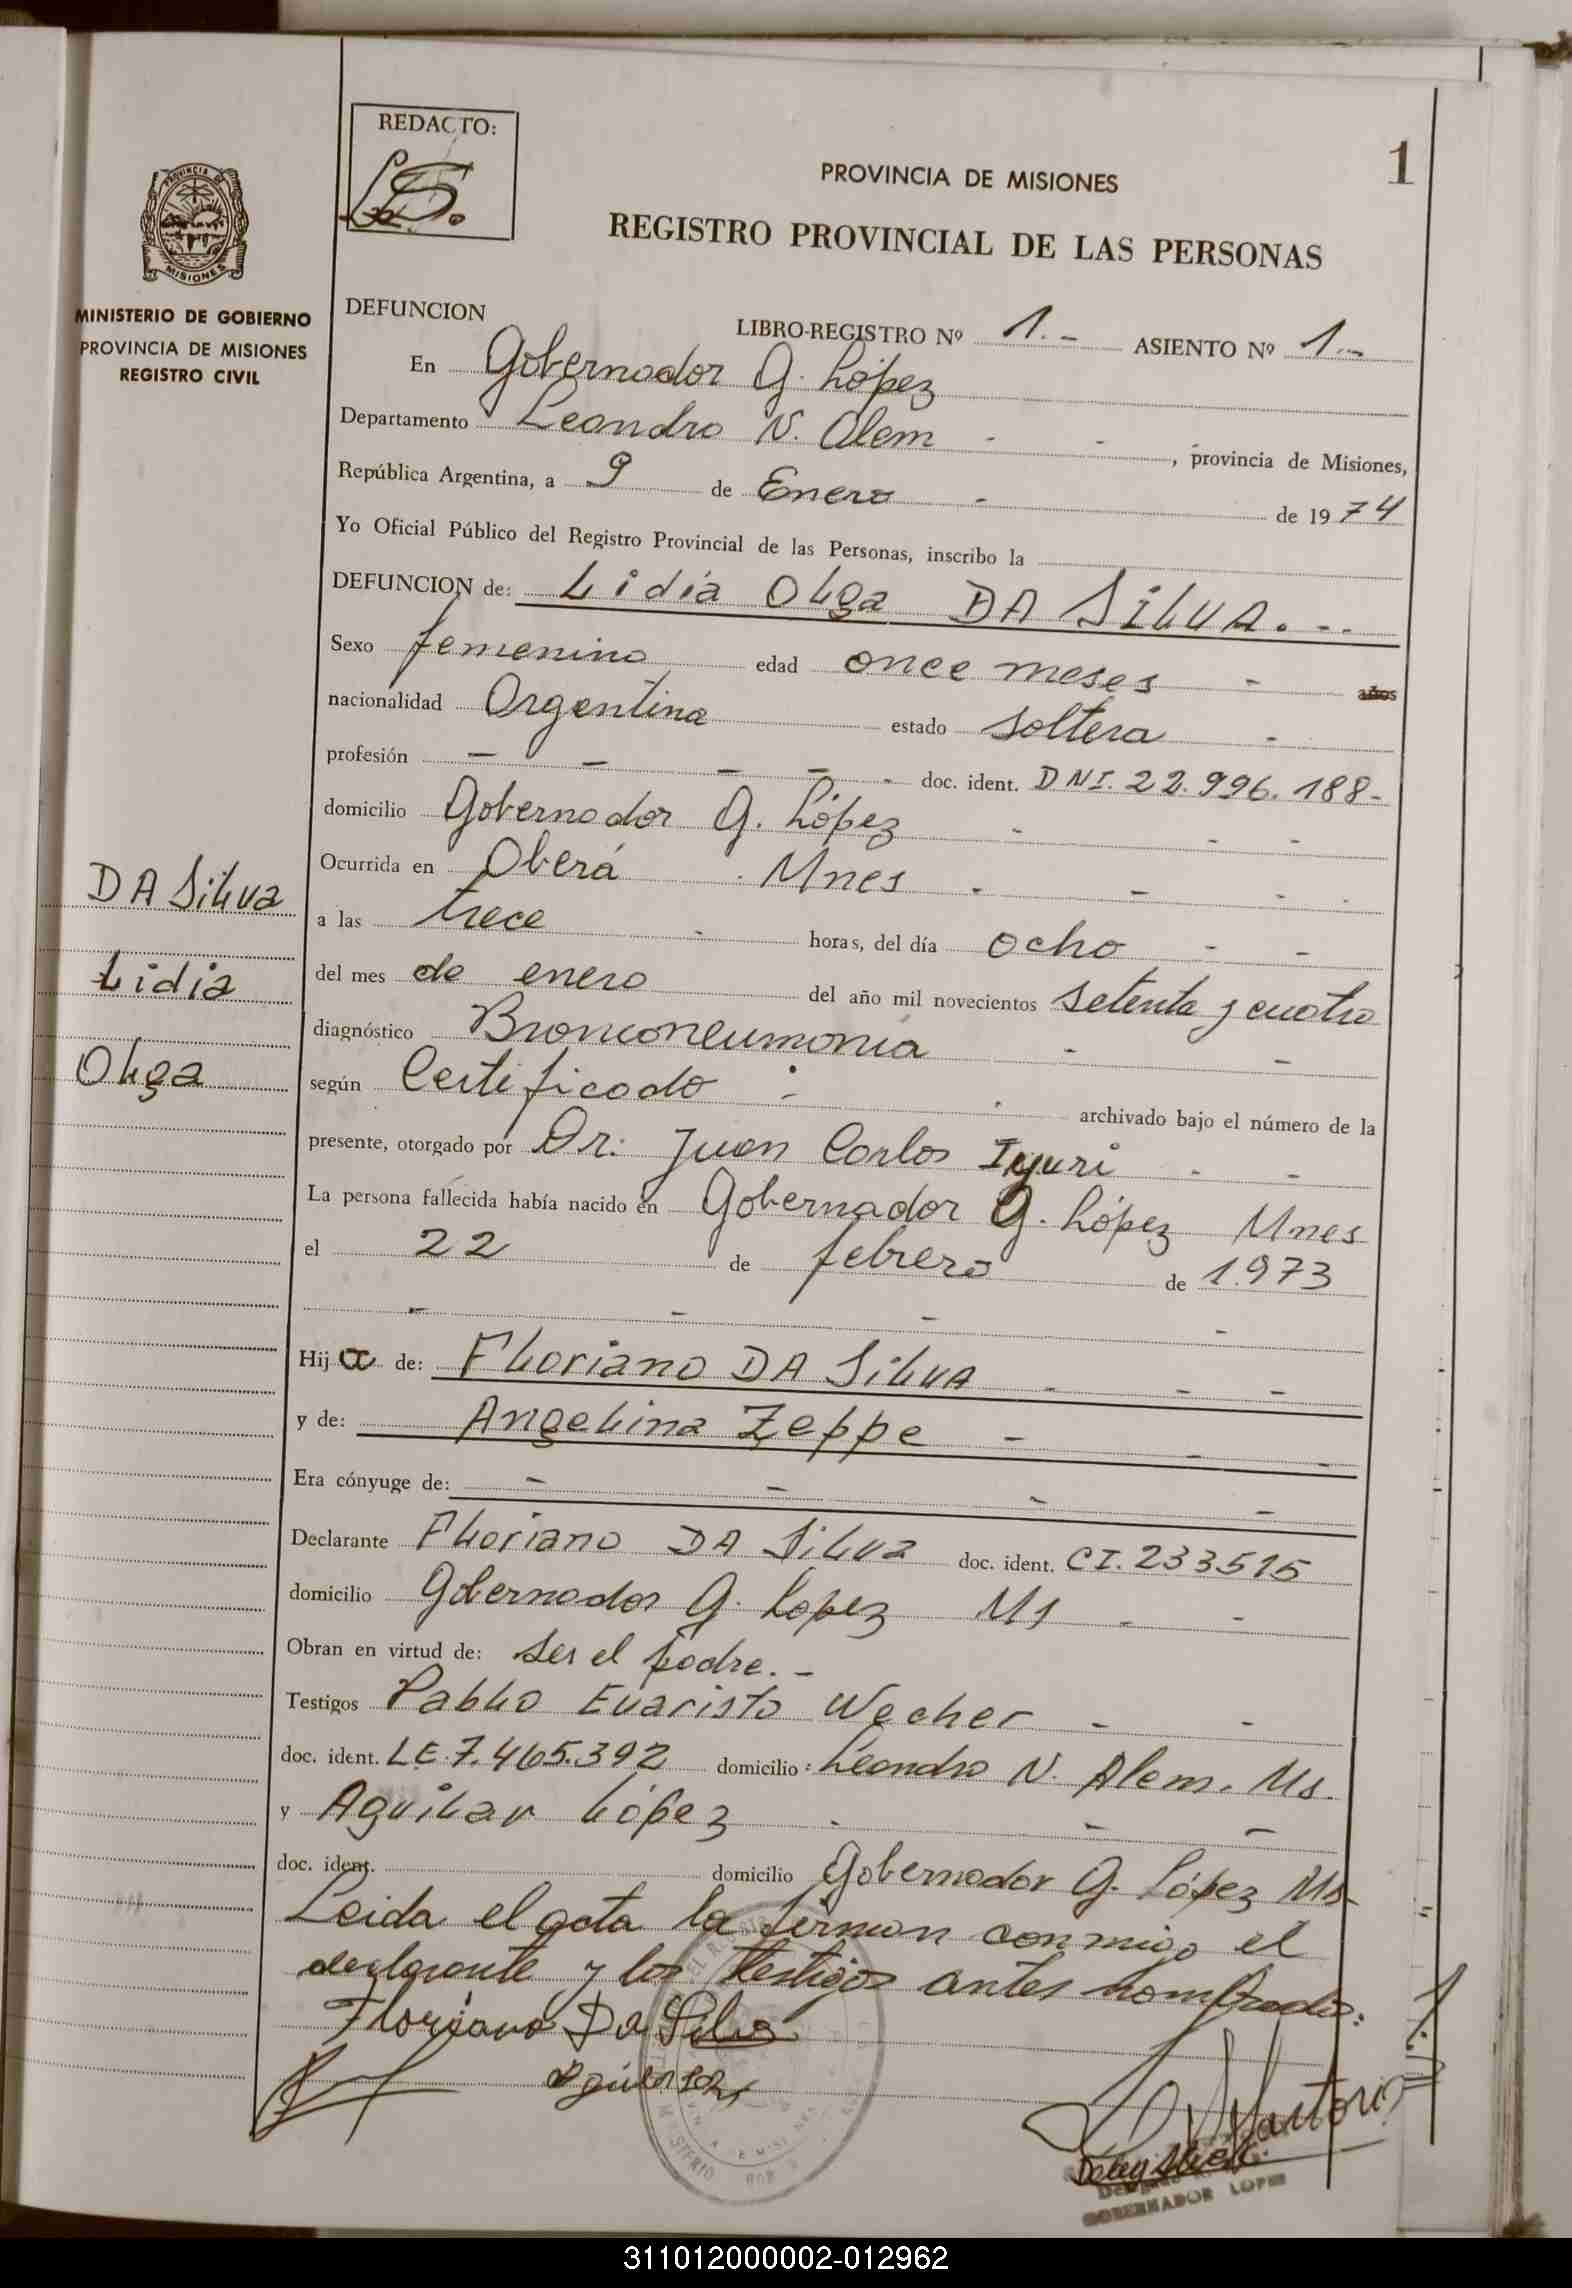 REDACTO:
1
PROVINCIA DE MISIONES
REGISTRO PROVINCIAL DE LAS PERSONAS
PROVINCIA DE
MISIONES
MINISTERIO DE GOBIERNO
PROVINCIA DE MISIONES
REGISTRO CIVIL
DEFUNCION
LIBRO-REGISTRO Nº 1.- ASIENTO Nº 1.-
En Gobernador G. López
Departamento Leandro N. Alem - - , provincia de Misiones,
República Argentina, a 9 de Enero - de 1974
Yo Oficial Público del Registro Provincial de las Personas, inscribo la
DEFUNCION de: Lidia Olga DA SILVA. --
Sexo femenino edad once meses - años
nacionalidad Argentina estado soltera -
profesión - - - - - doc. ident. DNI. 22.996.188-
domicilio Gobernador G. López - - -
Ocurrida en Oberá . Mnes - - - -
a las trece - horas, del día ocho - -
del mes de enero del año mil novecientos setenta y cuatro
diagnóstico Bronconeumonía - -
según Certificado - - archivado bajo el número de la
presente, otorgado por Dr. Juan Carlos Iyuri - -
La persona fallecida había nacido en Gobernador G. López Mnes
el 22 de febrero de 1.973
- - - -
Hija de: Floriano DA SILVA - - -
y de: Angelina Zeppe - - -
Era cónyuge de: - - - -
Declarante Floriano DA Silva doc. ident. CI. 233515
domicilio Gobernador G. López Ms - -
Obran en virtud de: ser el padre. -
Testigos Pablo Evaristo Wecher - -
doc. ident. LE. 7.465.392 domicilio: Leandro N. Alem. Ms.
y Aguilar López - - -
doc. ident. domicilio Gobernador G. López Ms-
Leida el acta la firman conmigo el
declarante y los testigos antes nombrados:
Floriano Da Silva
DA Silva
Lidia
Olga
GOBERNADOR LOPEZ
311012000002-012962